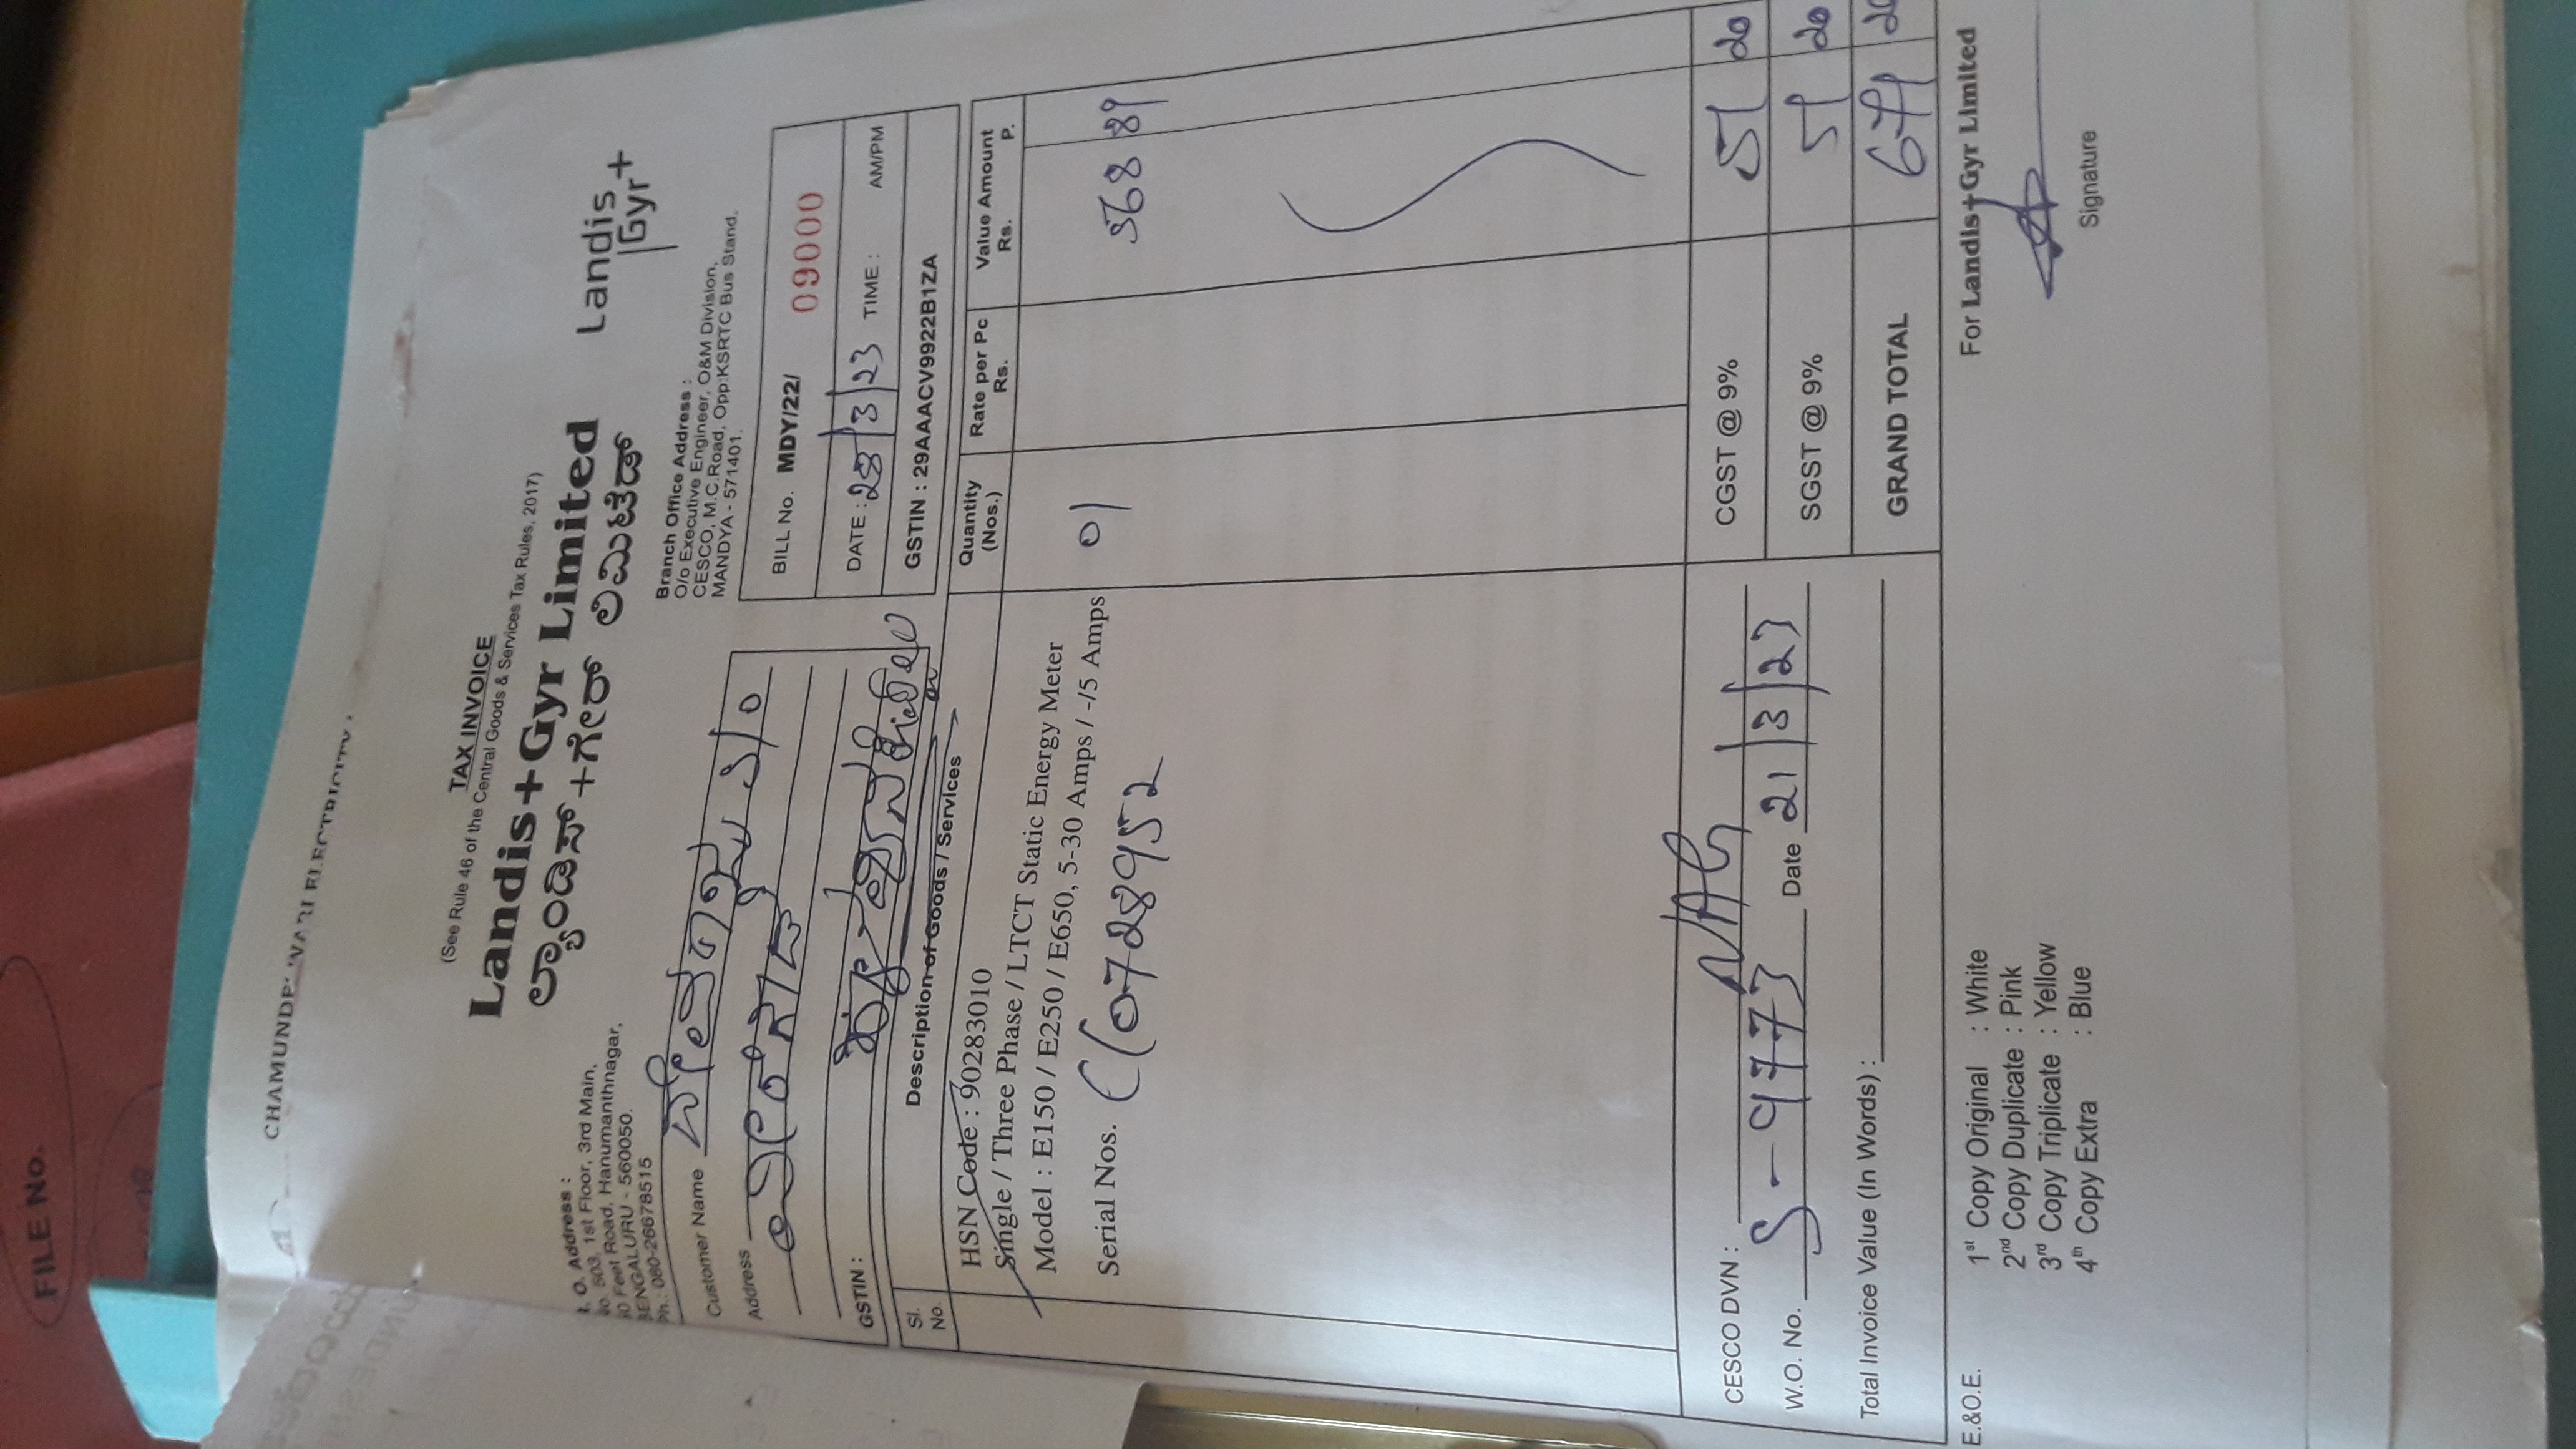 FILE No.
CHAMUNDE
TAX INVOICE
(See Rule 46 of the Central Goods & Services Tax Rules, 2017)
Landis+Gyr Limited
ಲ್ಯಾಂಡಿಸ್+ಗೇರ್ ಲಿಮಿಟೆಡ್
Landis
Gyr+
Address :
503, 1st Floor, 3rd Main,
Feet Road, Hanumanthnagar,
BENGALURU - 560050.
Ph.: 080-26678515
Branch Office Address :
O/o Executive Engineer, O&M Division,
CESCO, M.C.Road, Opp:KSRTC Bus Stand.
MANDYA - 571401.
Customer Name
Address
GSTIN :
BILL No. MDY/22/ 09000
DATE : 28/3/23 TIME : AM/PM
GSTIN : 29AAACV9922B1ZA
Sl. No. Description of Goods / Services Quantity (Nos.) Rate per Pc Rs. Value Amount Rs. P.
HSN Code : 90283010
Single / Three Phase / LTCT Static Energy Meter
Model : E150 / E250 / E650, 5-30 Amps / -/5 Amps 01 568 89
Serial Nos. (07289952
CESCO DVN : CGST @ 9% 51 20
W.O. No. S-9773 Date 21/3/23 SGST @ 9% 51 20
Total Invoice Value (In Words) : GRAND TOTAL 671
E.&O.E.
1st Copy Original : White
2nd Copy Duplicate : Pink
3rd Copy Triplicate : Yellow
4th Copy Extra : Blue
For Landis+Gyr Limited
Signature